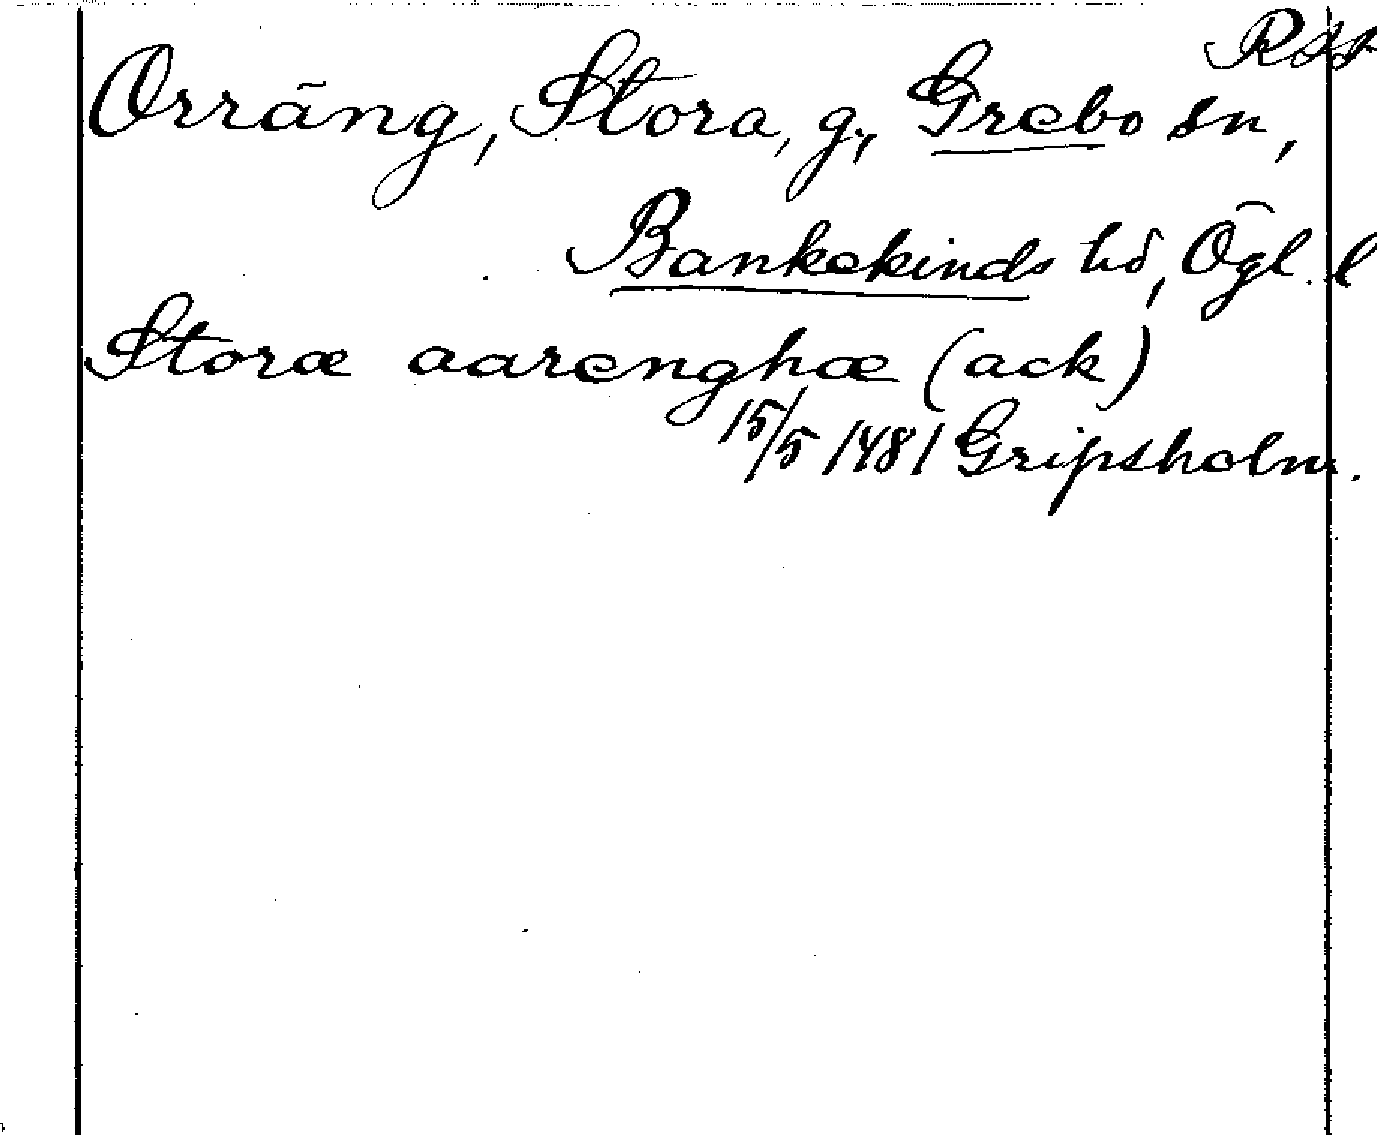 Rss
Orräng, Stora, g., Grebo sn,
Bankekinds hd, Ögl. l
Storæ aarenghæ (ack)
15/5 1481 Gripsholm.